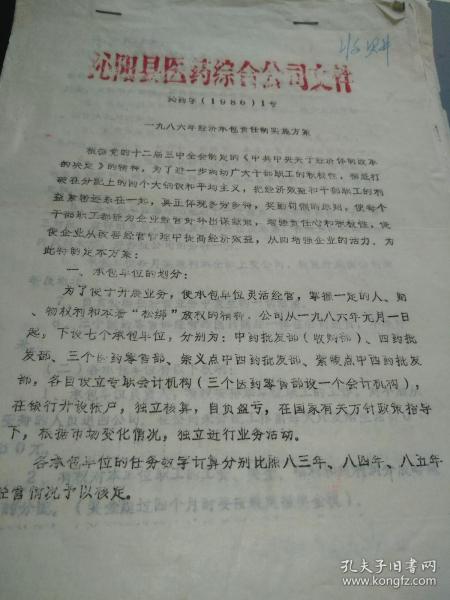 沁阳县医药综合公司文件
沁药字(1986)1号
一九八六年经济承包责任制实施方案
根据党的十二届三中全会制定的《中共中央关于经济体制改革
的决定》的精神，为了进一步调动广大干部职工的积极性，彻底打
破在分配上的两个大锅饭和平均主义，把经济效益和干部职工的利
益紧密联系在一起，真正体现多劳多得，奖勤罚懒的原则，使每个
干部职工都能为企业经营好外出谋献策，增强责任心和积极性，促
使企业从改善经营管理中提高经济效益，从而增强企业的活力，为
此特制定本方案：
一、承包单位的划分：
为了便于开展业务，使承包单位灵活经营，掌握一定的人、财
、物权利和本着“松绑”放权的精神，公司从一九八六年元月一日
起，下设七个承包单位，分别为：中药批发部（收购部）、西药批
发部、三个医药零售部、崇义点中西药批发部、紫陵点中西药批发
部，各自设立专职会计机构（三个医药零售部设一个会计机构），
在银行开设帐户，独立核算，自负盈亏，在国家有关方针政策指导
下，根据市场变化情况，独立进行业务活动。
各承包单位的任务数字计算分别比照八三年、八四年、八五年
经营情况予以核定。
孔夫子旧书网